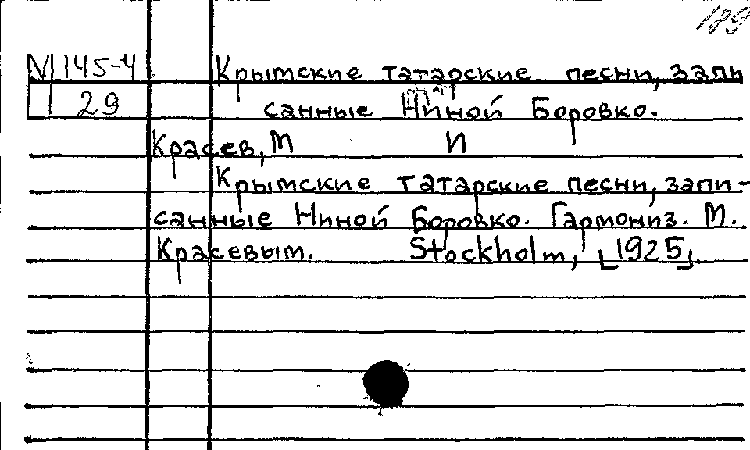 189
N 145-4 Крымские татарские песни, запи
29 санные Ниной Боровко.
Красев, М И
Крымские татарские песни, запи-
санные Ниной Боровко. Гармониз. М.
Красевым. Stockholm, [1925].